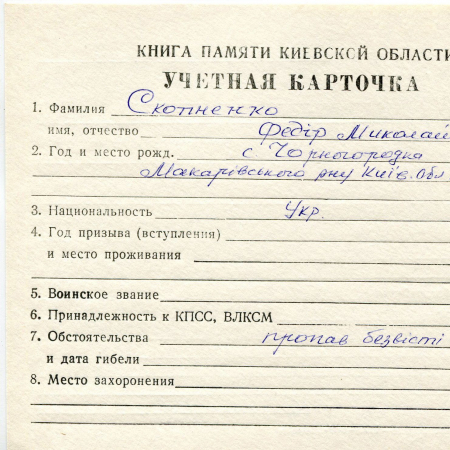 КНИГА ПАМЯТИ КИЕВСКОЙ ОБЛАСТИ
УЧЕТНАЯ КАРТОЧКА
1. Фамилия Скопненко
имя, отчество Федір Миколай
2. Год и место рожд. с Чорногородка
Макарівського рну Київ. обл
3. Национальность Укр.
4. Год призыва (вступления)
и место проживания
5. Воинское звание
6. Принадлежность к КПСС, ВЛКСМ
7. Обстоятельства пропав безвісті
и дата гибели
8. Место захоронения